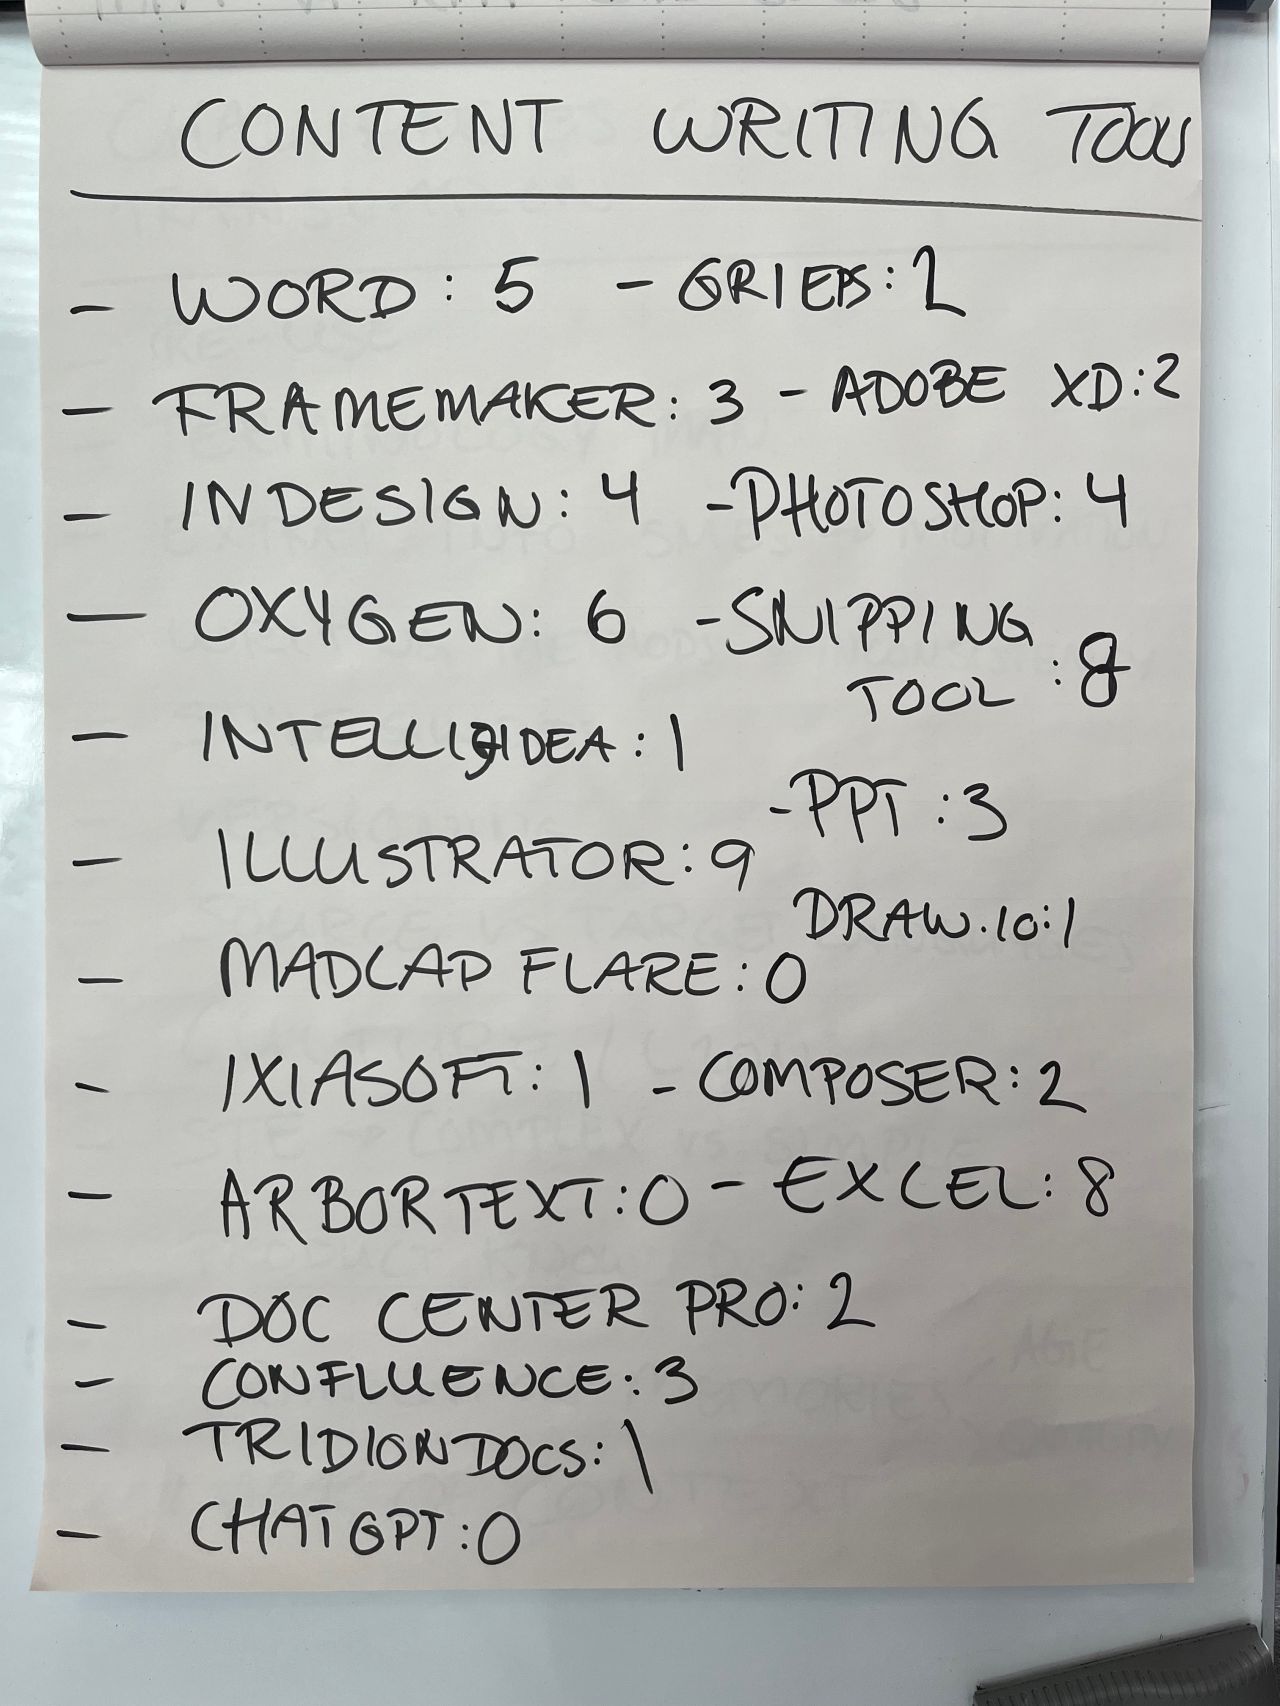 CONTENT WRITING TOOLS
- WORD: 5 - GRIEPS: 2
- FRAMEMAKER: 3 - ADOBE XD: 2
- INDESIGN: 4 - PHOTOSHOP: 4
- OXYGEN: 6 - SNIPPING TOOL: 8
- INTELLIJIDEA: 1
- PPT: 3
- ILLUSTRATOR: 9
DRAW.IO: 1
- MADCAP FLARE: 0
- IXIASOFT: 1 - COMPOSER: 2
- ARBORTEXT: 0 - EXCEL: 8
- DOC CENTER PRO: 2
- CONFLUENCE: 3
- TRIDION DOCS: 1
- CHATGPT: 0